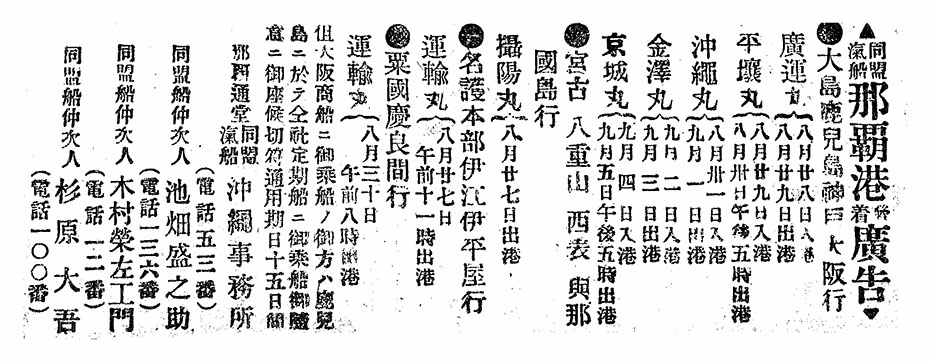 ▲同盟汽船那覇港發着廣告▼
●大島鹿兒島神戸大阪行
廣運丸 八月廿八日入港 八月廿九日出港
平壤丸 八月廿九日入港 八月卅日午後五時出港
沖繩丸 八月卅一日入港 九月一日出港
金澤丸 九月二日入港 九月三日出港
京城丸 九月四日入港 九月五日午後五時出港
●宮古 八重山 西表 與那
國島行
攝陽丸 八月廿七日出港
●名護本部伊江伊平屋行
運輸丸 八月廿七日 午前十一時出港
●粟國慶良間行
運輸丸 八月三十日 午前八時出港
但大阪商船ニ御乘船ノ御方ハ鹿兒
島ニ於テ仝社定期船ニ御乘船御隨
意ニ御座候切符通用期日十五日間
那覇西通堂
同盟汽船 沖繩事務所
(電話五三番)
同盟船仲次人 池畑盛之助
(電話一三六番)
同盟船仲次人 木村榮左工門
(電話一二番)
同盟船仲次人 杉原大吾
(電話一〇〇番)